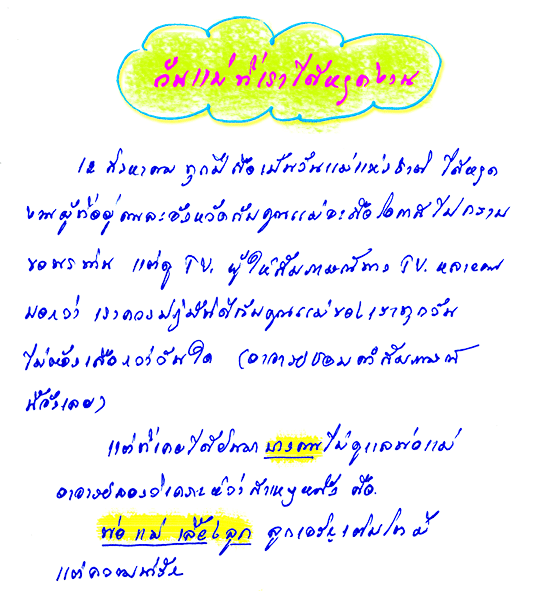 วันแม่ที่เราได้หยุดงาน
12 สิงหาคม ทุกปี คือเป็นวันแม่แห่งชาติ ได้หยุด
งานผู้ที่อยู่คนละจังหวัดกับคุณแม่จะถือโอกาสไปกราบ
ขอพรท่าน แต่ดู TV. ผู้ให้สัมภาษณ์ทาง TV. หลายคน
บอกว่า เราควรปฏิบัติดีกับคุณแม่ของเราทุกวัน
ไม่ต้องเลือกว่าวันใด (อาจารย์ชอบคำสัมภาษณ์
นี้จังเลย)
แต่ที่เคยได้ยินมา บางคนไม่ดูแลพ่อแม่
อาจารย์ลองวิเคราะห์ว่าสาเหตุหนึ่ง คือ
พ่อ แม่ เลี้ยงลูก ลูกเจริญเติบโตมี
แต่ความ